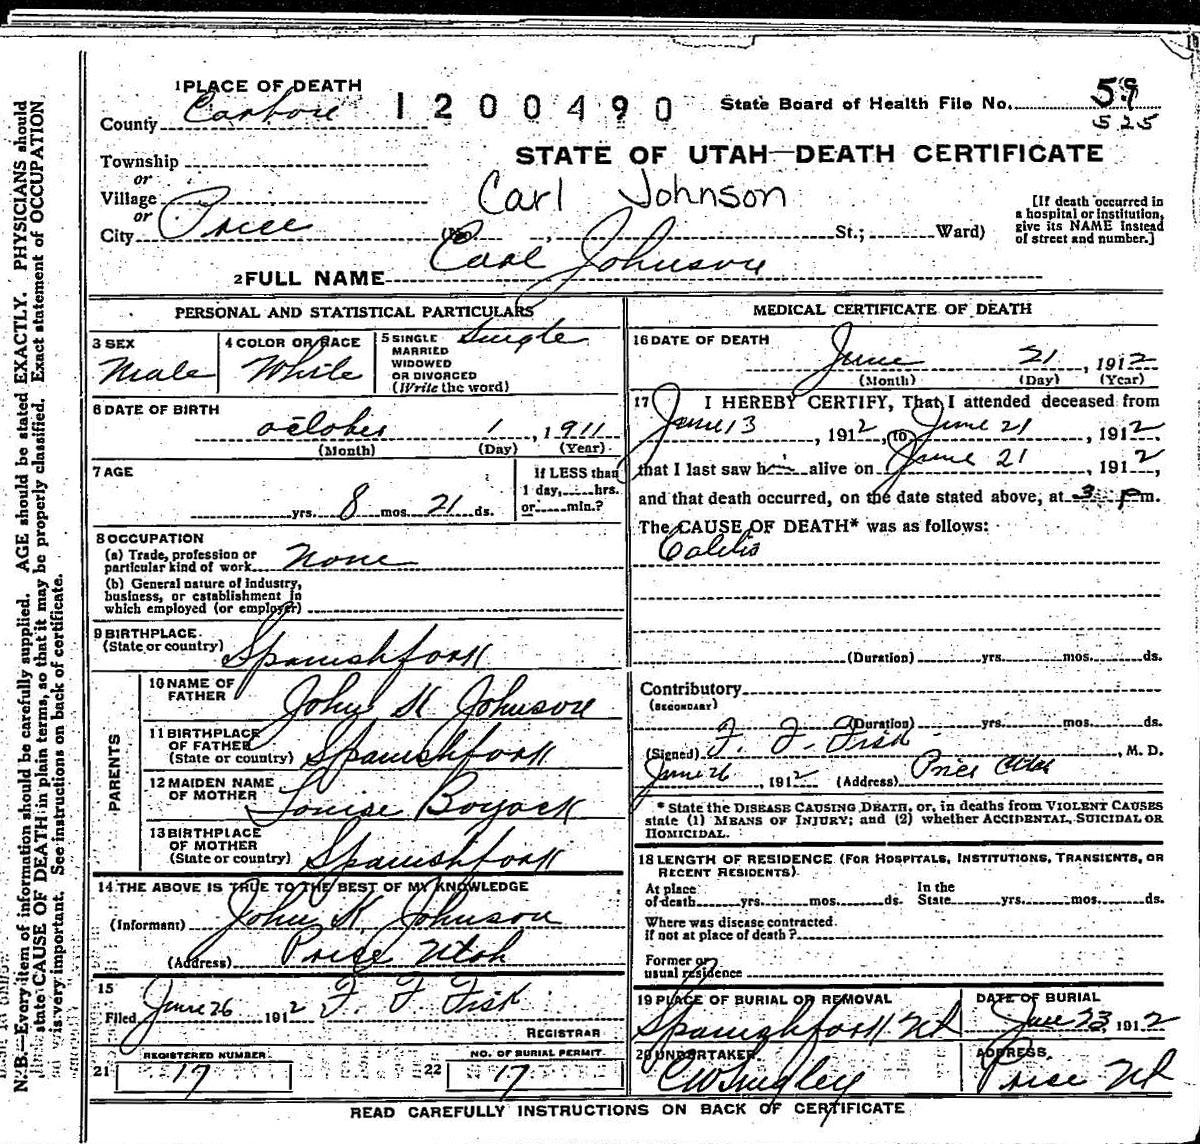 1 PLACE OF DEATH
County Carbon 1200490 State Board of Health File No. 59
525
STATE OF UTAH—DEATH CERTIFICATE
Township
or
Village
or
City Price (No. , St.; Ward)
Carl Johnson
[If death occurred in a hospital or institution, give its NAME instead of street and number.]
2 FULL NAME Carl Johnson
PERSONAL AND STATISTICAL PARTICULARS
3 SEX Male
4 COLOR OR RACE White
5 SINGLE MARRIED WIDOWED OR DIVORCED (Write the word) Single
6 DATE OF BIRTH
October 1, 1911
(Month) (Day) (Year)
7 AGE
yrs. 8 mos. 21 ds.
If LESS than 1 day, hrs. or min.?
8 OCCUPATION
(a) Trade, profession or particular kind of work None
(b) General nature of industry, business, or establishment in which employed (or employer)
9 BIRTHPLACE
(State or country) Spanishfork
PARENTS
10 NAME OF FATHER John K Johnson
11 BIRTHPLACE OF FATHER (State or country) Spanishfork
12 MAIDEN NAME OF MOTHER Louise Boyack
13 BIRTHPLACE OF MOTHER (State or country) Spanishfork
14 THE ABOVE IS TRUE TO THE BEST OF MY KNOWLEDGE
(Informant) John K. Johnson
(Address) Price Utah
15
Filed June 26 1912 F. F. Fisk
REGISTRAR
REGISTERED NUMBER
21 17
NO. OF BURIAL PERMIT
22 17
MEDICAL CERTIFICATE OF DEATH
16 DATE OF DEATH
June 21, 1912
(Month) (Day) (Year)
17 I HEREBY CERTIFY, That I attended deceased from
June 13, 1912, to June 21, 1912
that I last saw him alive on June 21, 1912,
and that death occurred, on the date stated above, at 3 p m.
The CAUSE OF DEATH* was as follows:
Colitis
(Duration) yrs. mos. ds.
Contributory
(SECONDARY)
(Duration) yrs. mos. ds.
(Signed) F. F. Fisk, M. D.
June 26, 1912 (Address) Price Utah
* State the DISEASE CAUSING DEATH, or, in deaths from VIOLENT CAUSES
state (1) MEANS OF INJURY; and (2) whether ACCIDENTAL, SUICIDAL OR
HOMICIDAL.
18 LENGTH OF RESIDENCE (FOR HOSPITALS, INSTITUTIONS, TRANSIENTS, OR
RECENT RESIDENTS).
At place of death yrs. mos. ds. In the State yrs. mos. ds.
Where was disease contracted.
if not at place of death?
Former or
usual residence
19 PLACE OF BURIAL OR REMOVAL
Spanishfork Ut
DATE OF BURIAL
June 23 1912
20 UNDERTAKER
ADDRESS
Price Ut
READ CAREFULLY INSTRUCTIONS ON BACK OF CERTIFICATE
N. B.—Every item of information should be carefully supplied. AGE should be stated EXACTLY. PHYSICIANS should
state CAUSE OF DEATH in plain terms, so that it may be properly classified. Exact statement of OCCUPATION
is very important. See instructions on back of certificate.